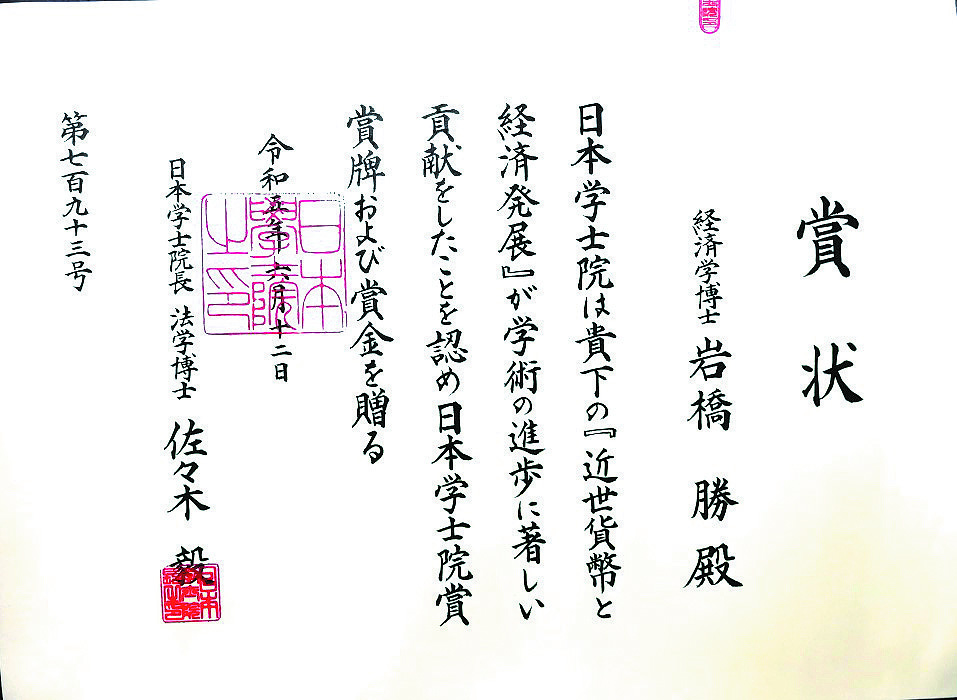 賞状
経済学博士 岩橋 勝 殿
日本学士院は貴下の『近世貨幣と
経済発展』が学術の進歩に著しい
貢献をしたことを認め日本学士院賞
賞牌および賞金を贈る
令和五年六月十二日
日本学士院長 法学博士 佐々木 毅
第七百九十三号
日本学士院之印